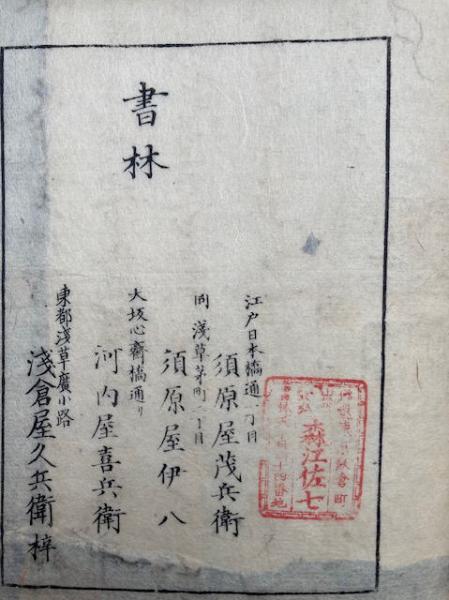 書林
江戸日本橋通一丁目
須原屋茂兵衛
同浅草茅町二丁目
須原屋伊八
大坂心齋橋通り
河内屋喜兵衛
東都淺草廣小路
淺倉屋久兵衛梓
森江佐七